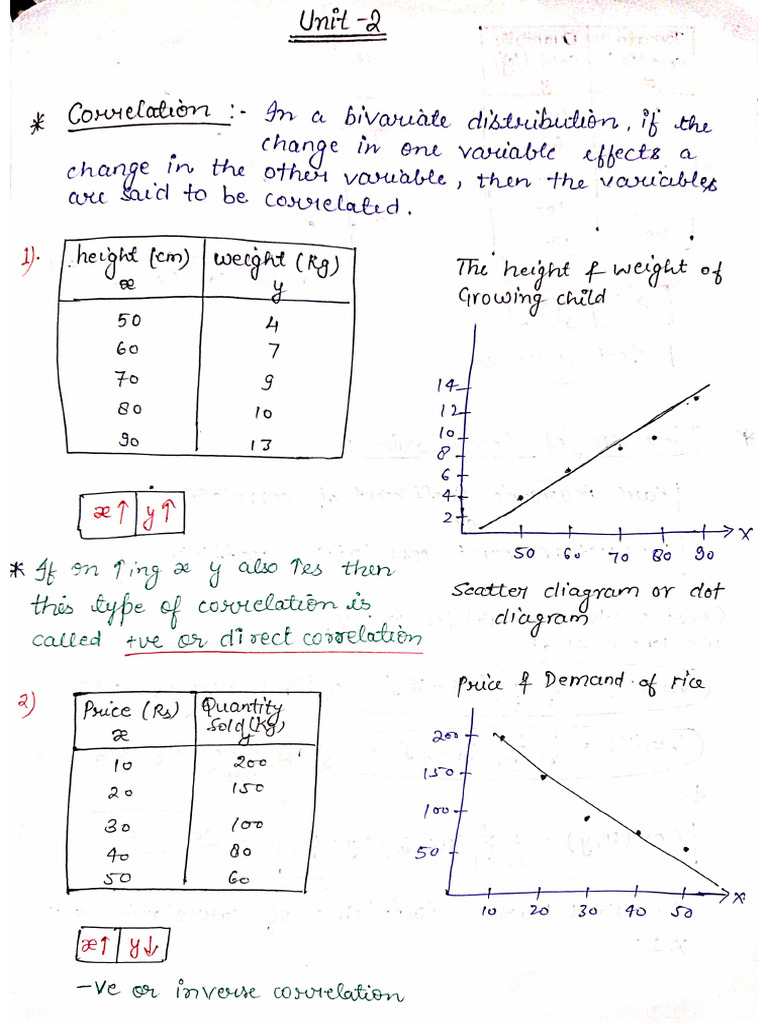 Unit-2
* Correlation :- In a bivariate distribution, if the
change in one variable effects a
change in the other variable, then the variables
are said to be correlated.
1).
height (cm) weight (Kg)
x y
50 4
60 7
70 9
80 10
90 13
The height & weight of
Growing child
14
12
10
8
6
4
2
50 60 70 80 90 X
x↑ y↑
* If on ↑ing x y also ↑es then
this type of correlation is
called +ve or direct correlation
Scatter diagram or dot
diagram
2)
Price (Rs) Quantity
Sold (Kg)
x y
10 200
20 150
30 100
40 80
50 60
Price & Demand of rice
200
150
100
50
10 20 30 40 50 X
x↑ y↓
-Ve or inverse correlation